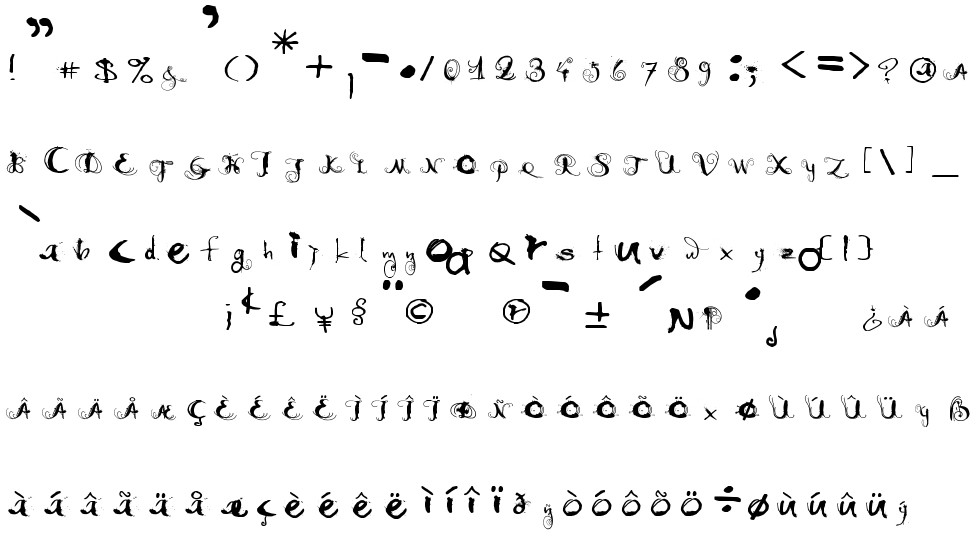 ! " # $ % & ' ( ) * + , - . / 0 1 2 3 4 5 6 7 8 9 : ; < = > ? @ A
B C D E F G H I J K L M N O P Q R S T U V W X Y Z [ \ ] _
` a b c d e f g h i j k l m n o p q r s t u v w x y z { | }
¡ ¢ £ ¥ § ¨ © ® ¯ ± ´ µ ¶ · ¸ ¿ À Á
Â Ã Ä Å Æ Ç È É Ê Ë Ì Í Î Ï Ð Ñ Ò Ó Ô Õ Ö × Ø Ù Ú Û Ü Ý ß
à á â ã ä å æ ç è é ê ë ì í î ï ð ñ ò ó ô õ ö ÷ ø ù ú û ü ý